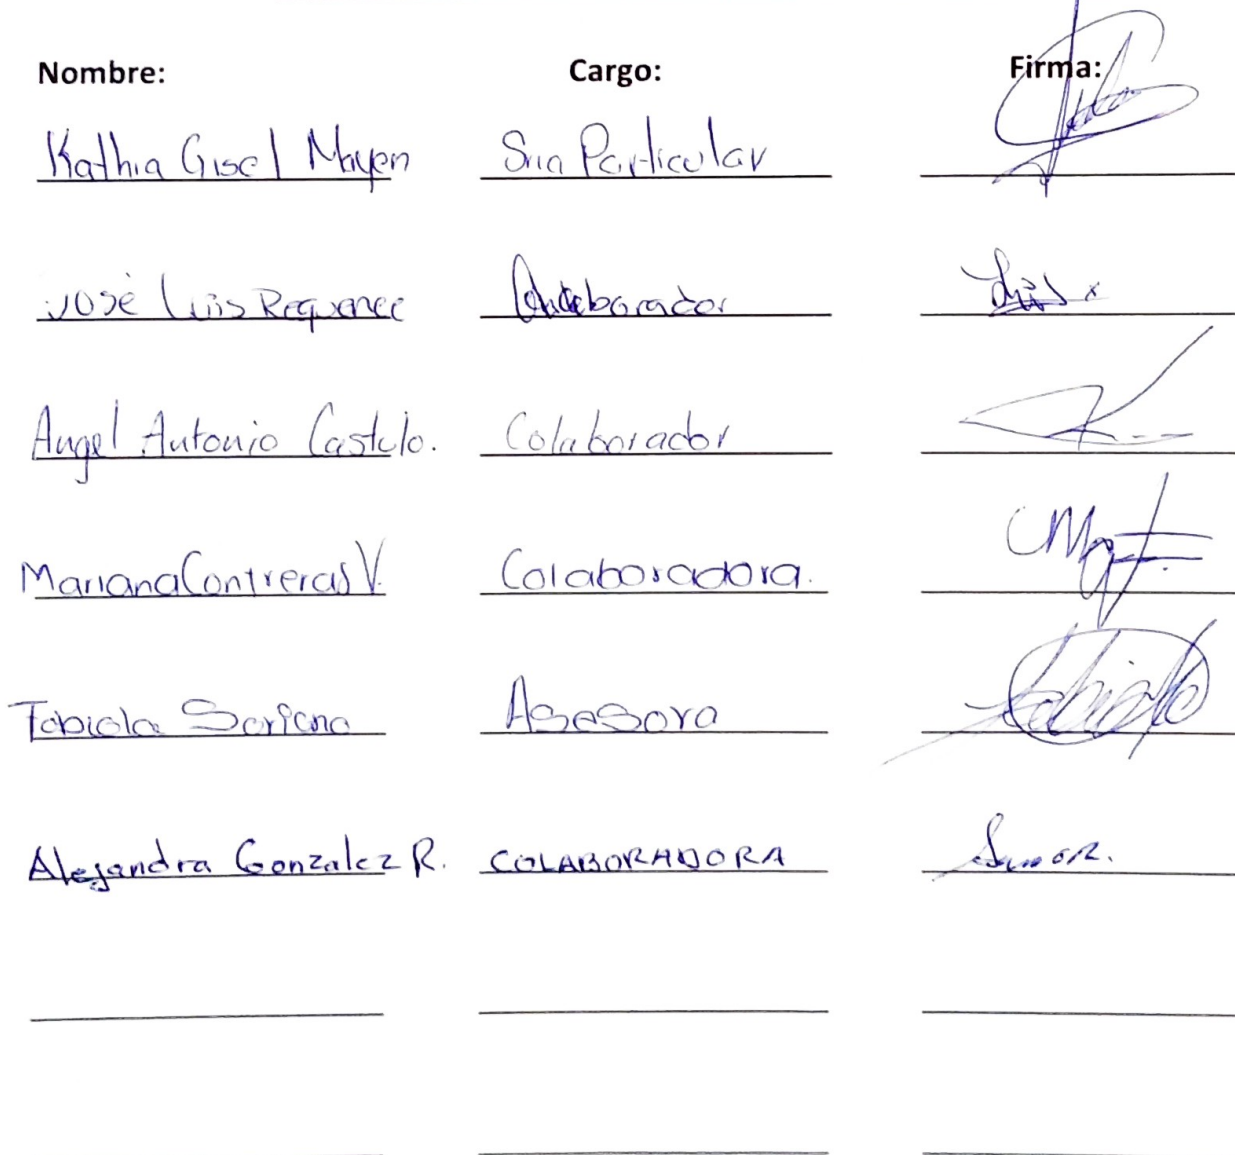 Nombre: Cargo: Firma:
Kathia Gisel Mayen Sria Particular
José Luis Requence Colaborador
Angel Antonio Castelo. Colaborador
Mariana Contreras V. Colaboradora.
Fabiola Soriano Asesora
Alejandra Gonzalez R. COLABORADORA